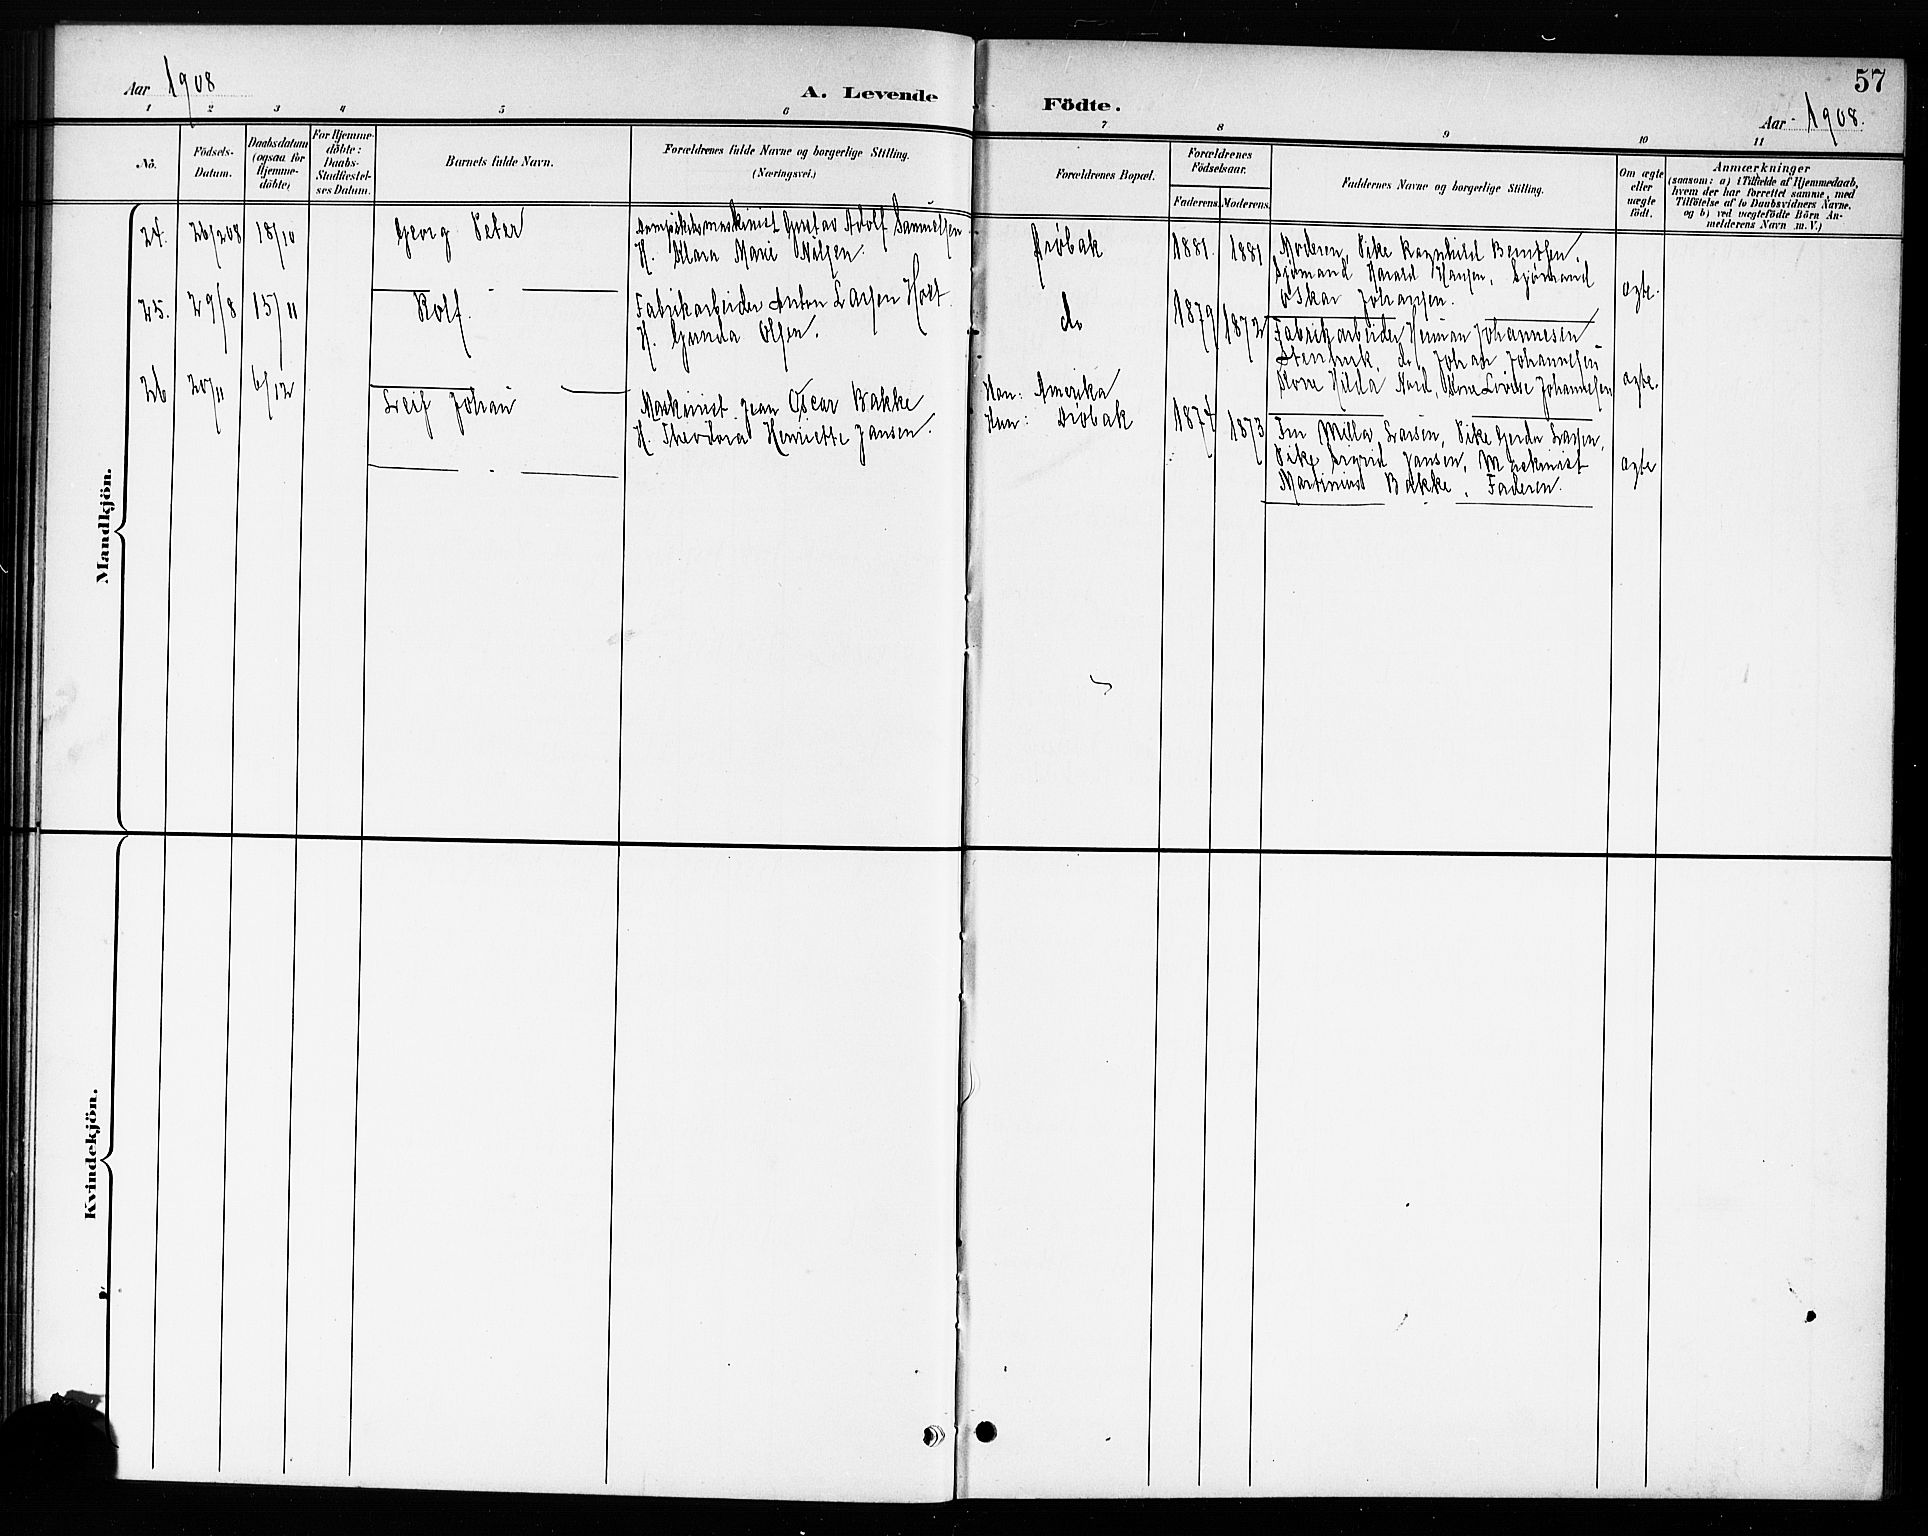 Aar 1908
A. Levende
Födte.
57
Aar 1908.
1 2 3 4 5 6 7 8 9 10 11
No.
Födsels-
Datum.
Daabsdatum
(ogsaa for
Hjemme-
döbte)
For Hjemme-
döbte:
Daabs-
Stadfæstel-
ses Datum.
Barnets fulde Navn.
Forældrenes fulde Navne og borgerlige Stilling.
(Næringsvei.)
Forældrenes Bopæl.
Forældrenes
Födselsaar.
Faderens. Moderens.
Faddernes Navne og borgerlige Stilling.
Om ægte
eller
uægte
født.
Anmærkninger
(saasom: a) i Tilfælde af Hjemmedaab,
hvem der har forrettet samme, med
Tilföielse af to Daabsvidners Navne,
og b) ved uægtefödte Börn An-
melderens Navn m. V.)
Mandkjön.
24. 26/2 08 18/10 Georg Peter
Gustav Adolf Samuelsen.
H. Klara Marie Nilsen.
Drøbak
1881. 1881
Moderen, Pike Ragnhild Berntsen,
Sjømand Harald Hansen, Sjømand
Oskar Johansen.
ægte.
25. 29/8 15/11 Rolf.
Fabrikarbeider Anton Larsen Holt.
H. Gunda Olsen.
do
1879 1872
Fabrikarbeider Herman Johannesen
do Johan Johannesen
Kone Hilda Nord, Kone Lovise Johannesen
ægte.
26 20/11 6/12 Leif Johan
Maskinist Jean Oscar Bakke
H. Theodora Henriette Jansen.
Han: Amerika
Hun: Drøbak
1874 1873
Fru Milla Larsen, Pike Gerda Larsen,
Pike Sigrid Jansen, Maskinist
Martinius Bakke, Faderen.
ægte
Kvindekjön.